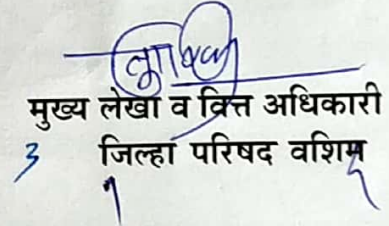 मुख्य लेखा व वित्त अधिकारी
3 जिल्हा परिषद वशिम